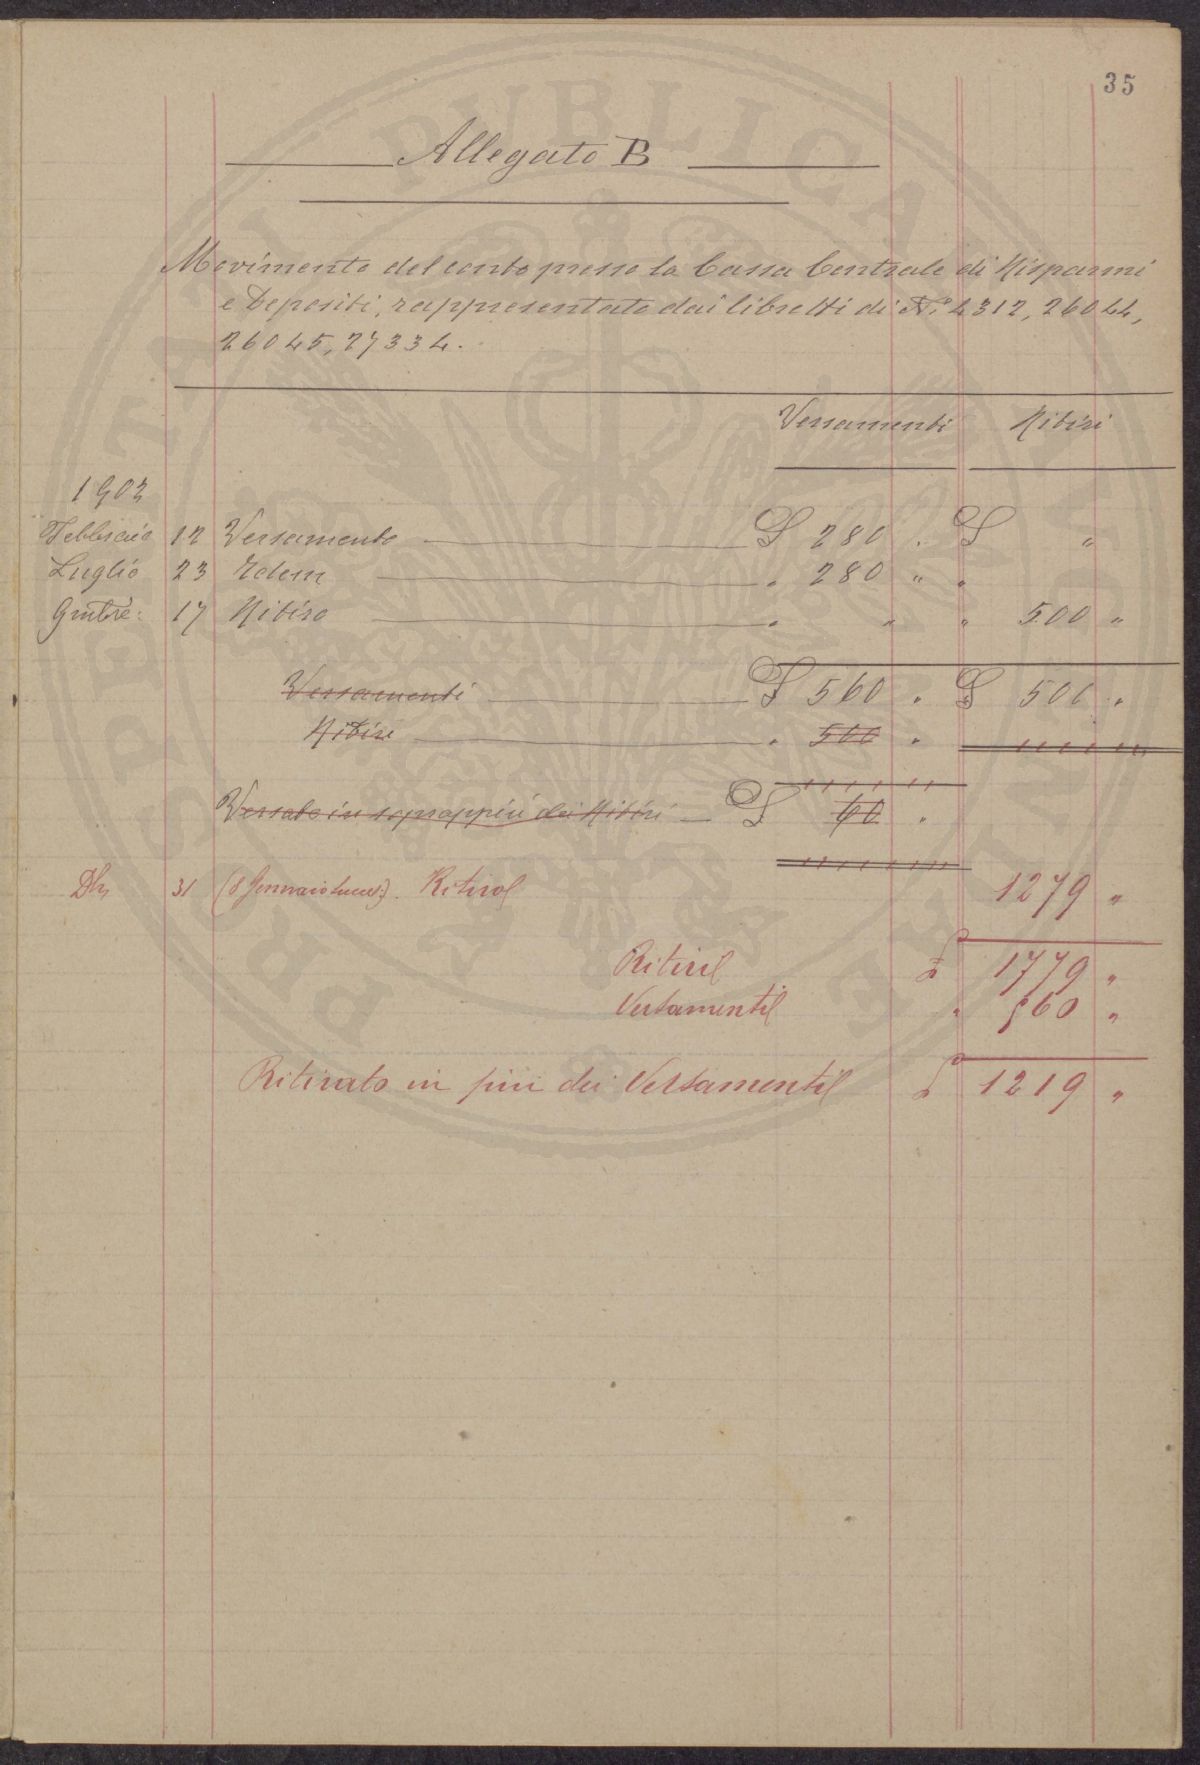 35
Allegato B
Movimento del conto presso la Cassa Centrale di Risparmi
e Depositi, rappresentato dai libretti di N.i 4312, 26044,
26045, 27334.
Versamenti Ritiri
1902
Febbraio 12 Versamento £ 280 . £ "
Luglio 23 Idem " 280 " "
17 Ritiro " " " 500 "
Versamenti £ 560 " £ 500 "
Ritiri " 500 "
Versato in soprappiù dei Ritiri £ 60 "
31 (8 Gennaio succ.). Ritirol 1279 "
Ritiril £ 1779 "
Versamentil " 560 "
Ritirato in più dei Versamentil £ 1219 "